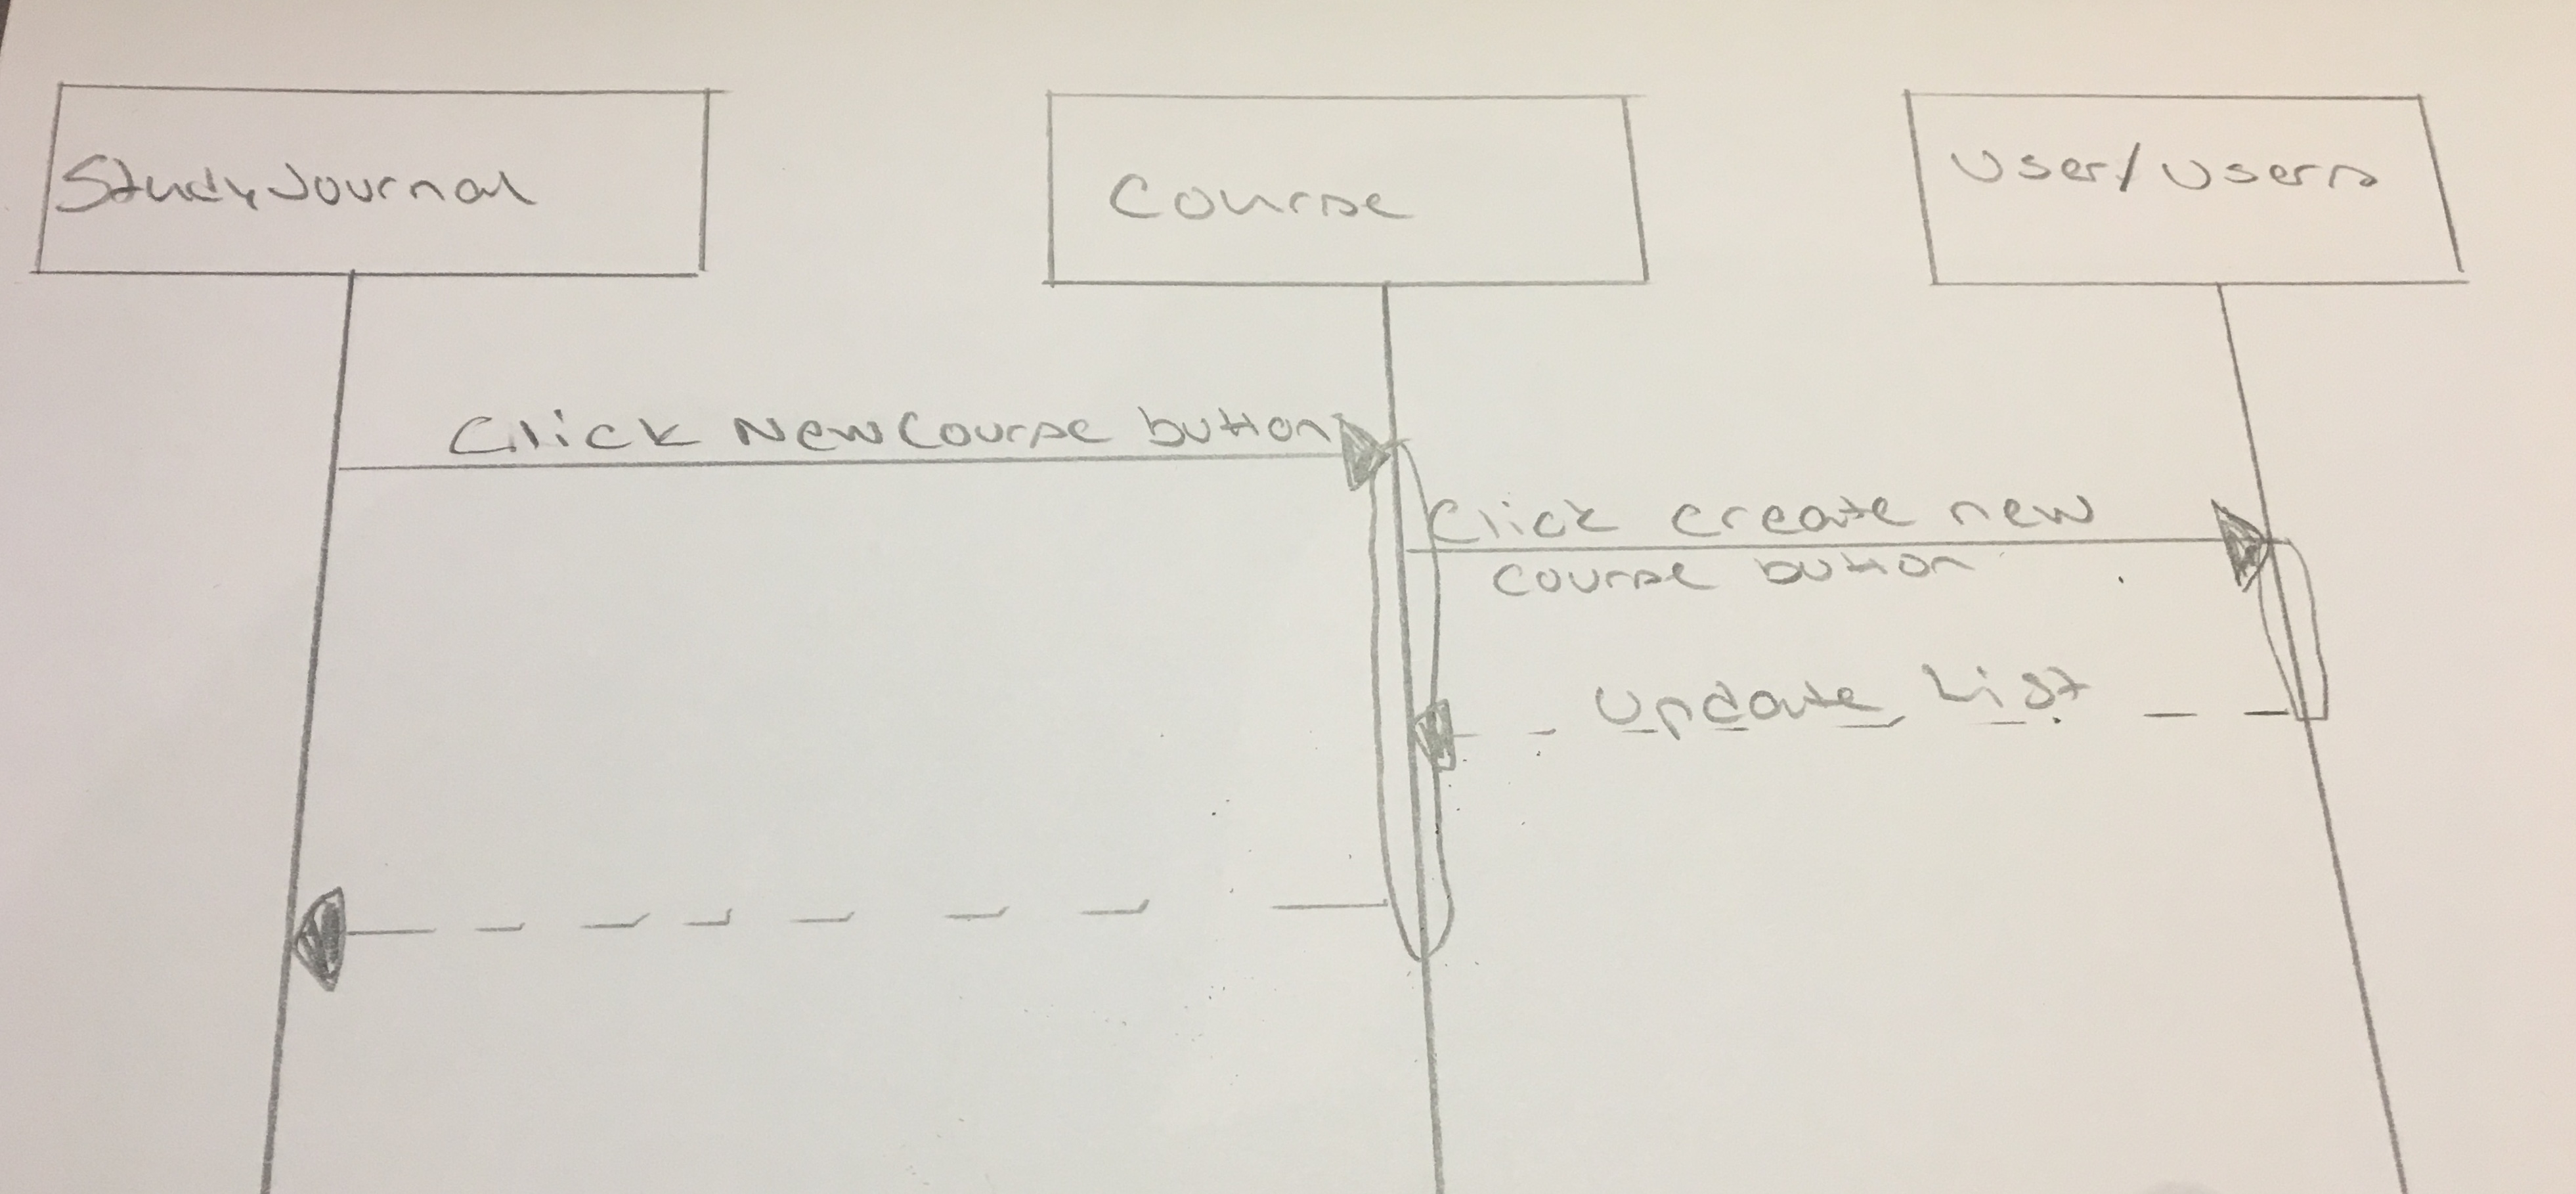 StudyJournal
Course
User/Users
Click New Course button
Click create new
course button
Update List